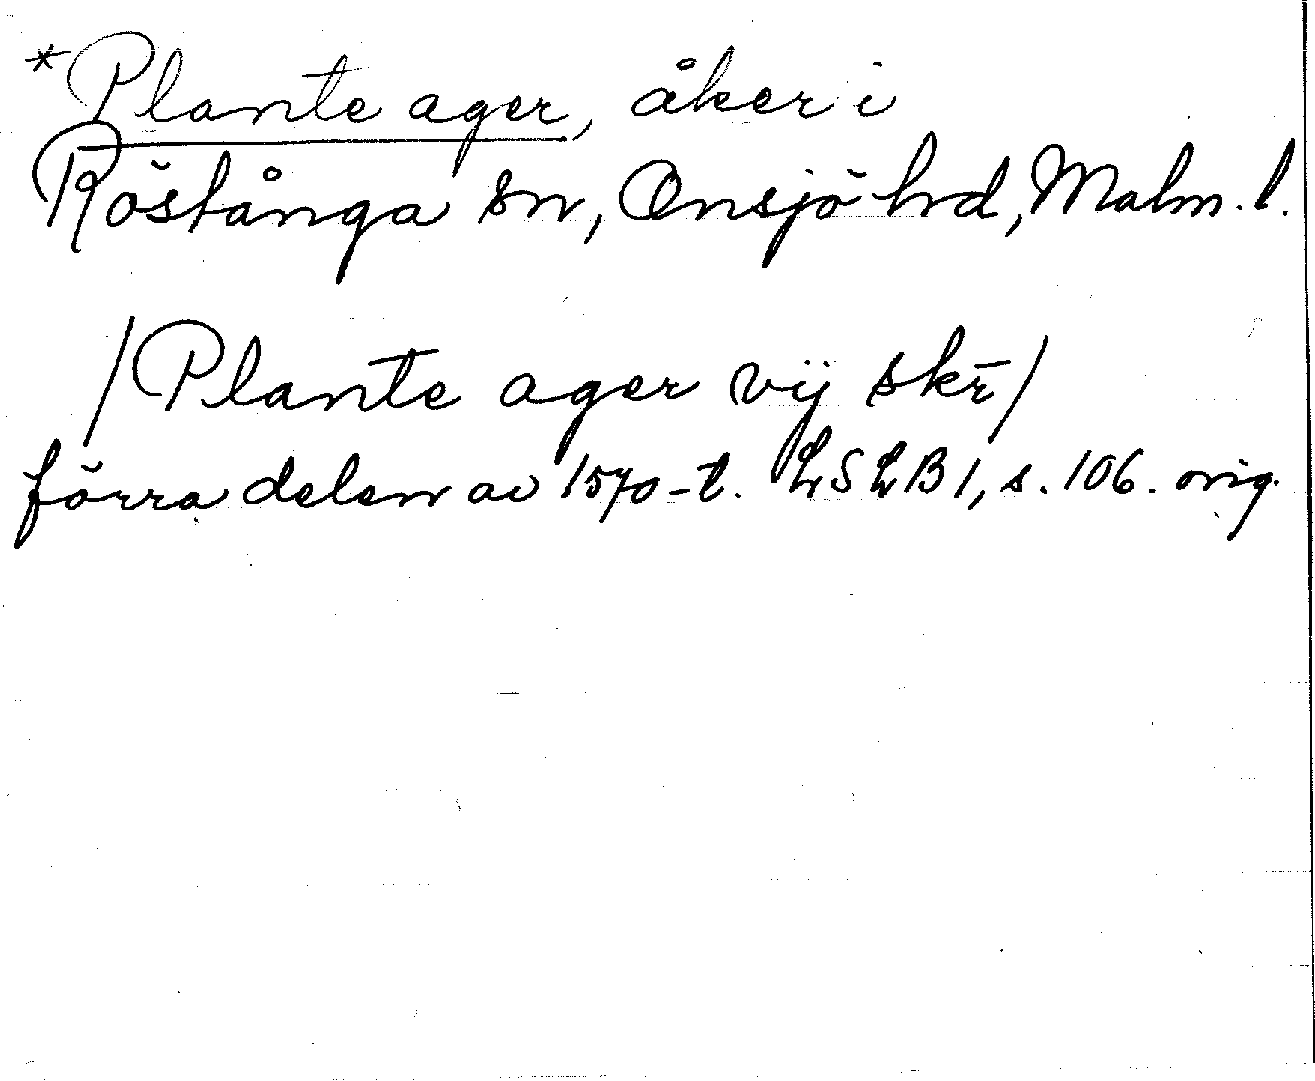 *Plante ager, åker i
Röstånga sn, Onsjö hrd, Malm. l.
/Plante ager vij skr̄/
förra delen av 1570-t. LSLB 1, s. 106. orig.